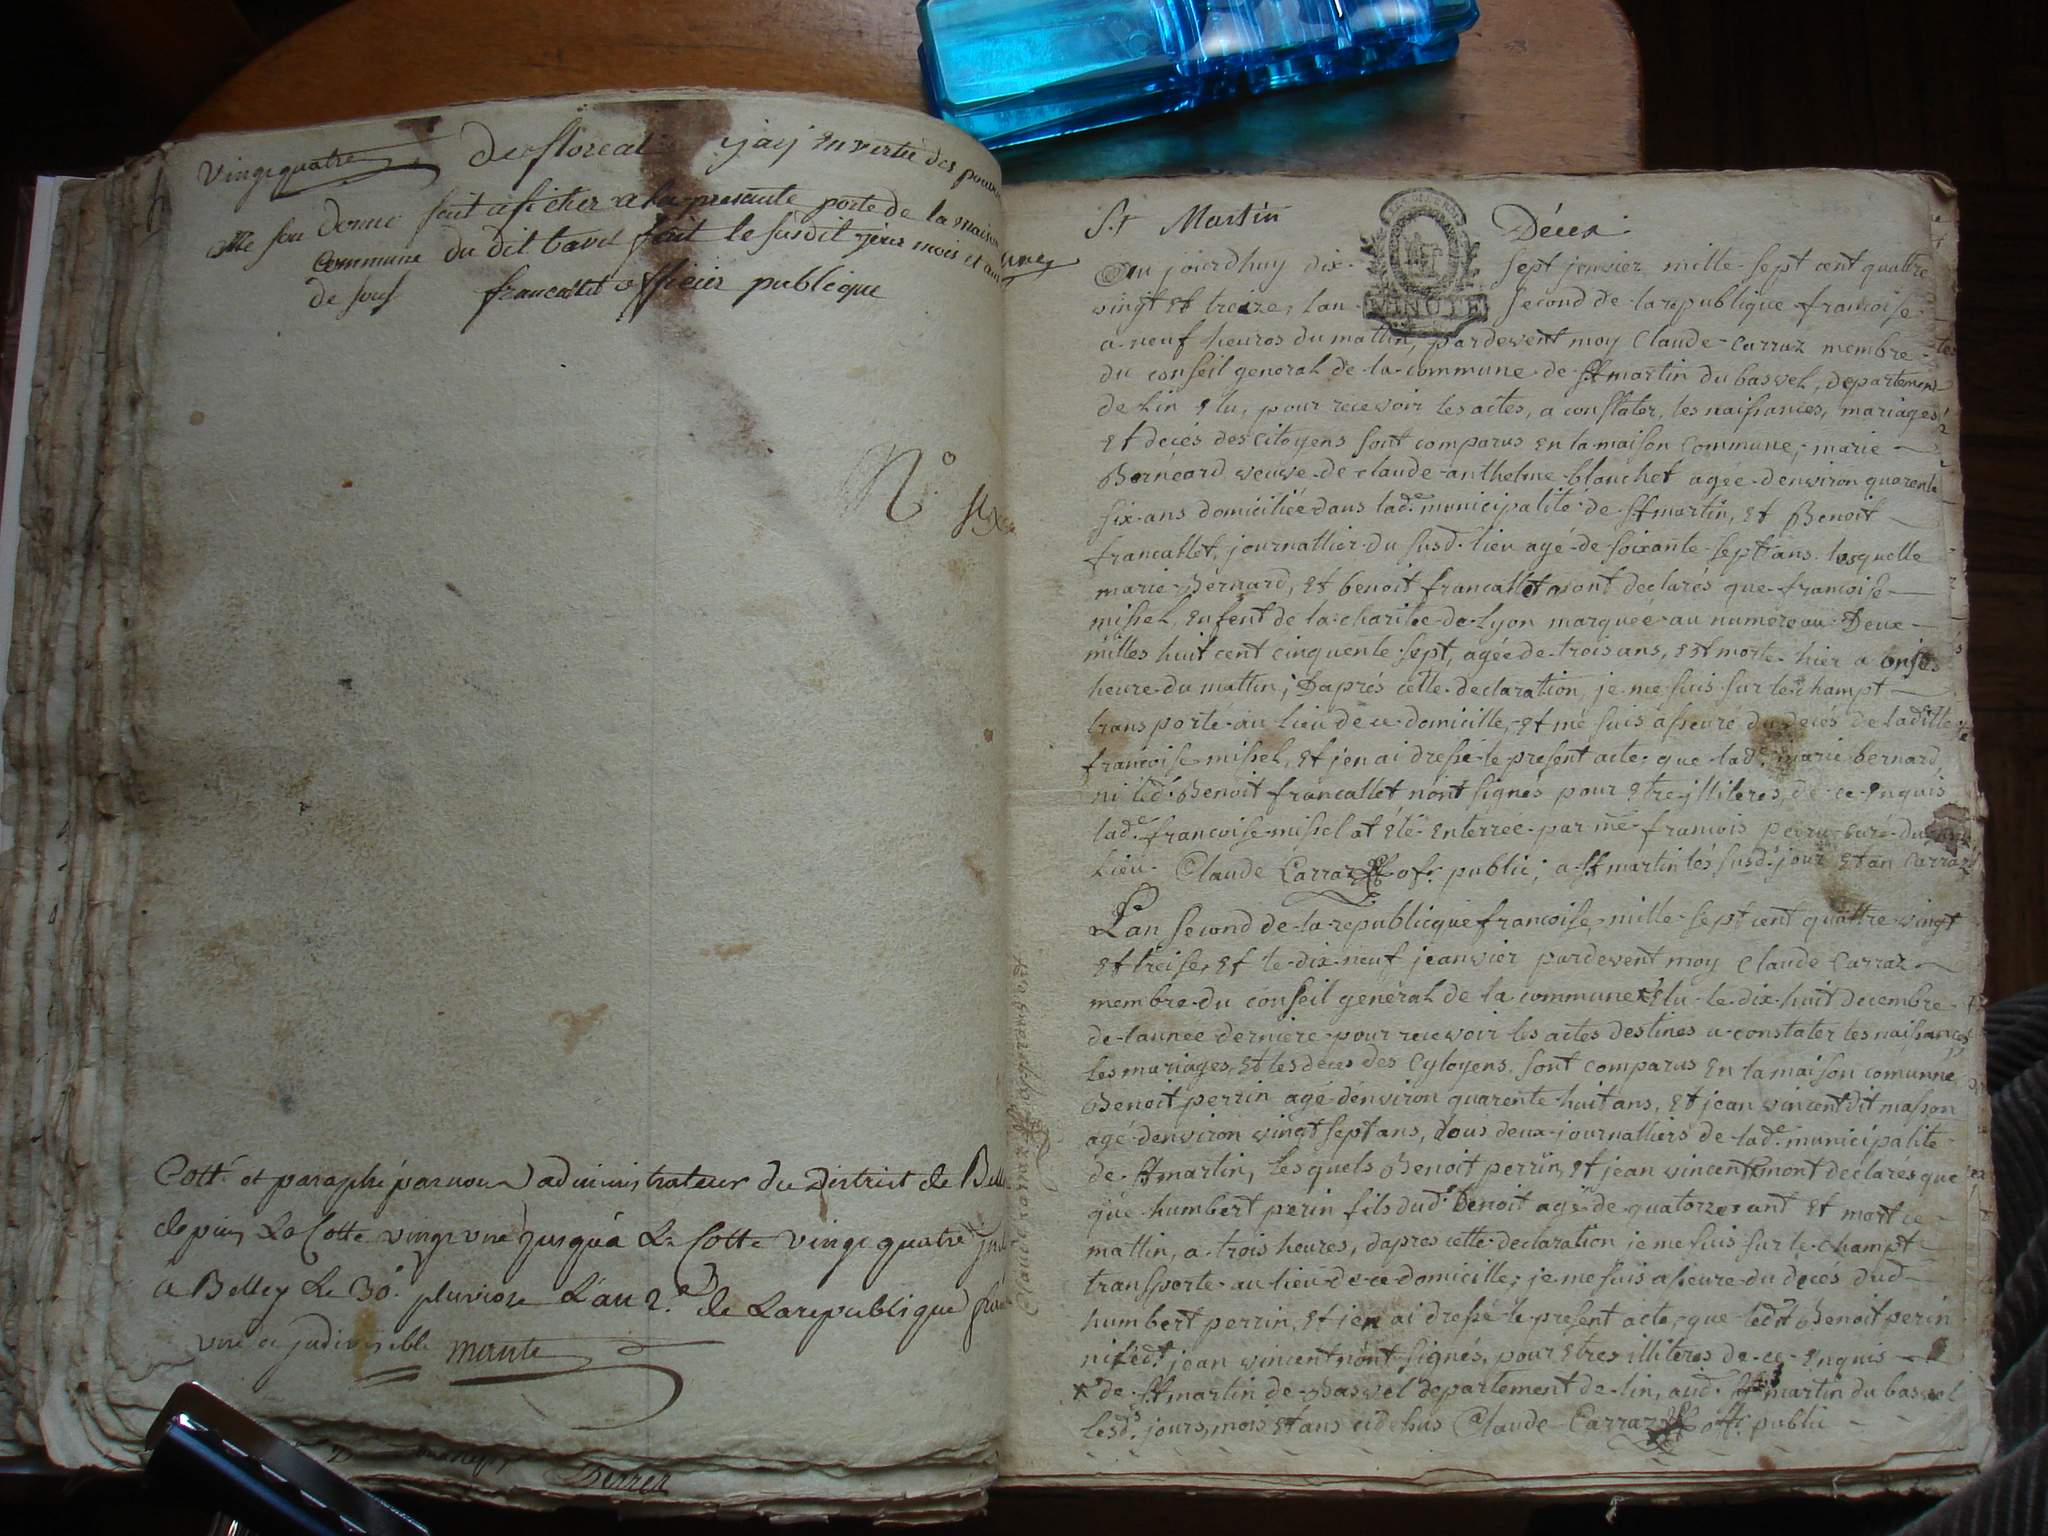 vingt quatre De floreal jay en vertu des pouvoirs
donné fait aficher a la presante porte de la maison
commune du dit lavel fait le susdit jour mois et an
de sus francallet officier publicque
N.º six
Cotté et paraphé par nous administrateur du District de Belley
depuis La Cotte vingt une jusqu'à La Cotte vingt quatre
à Belley Le 30.e pluviose L'an 2.e de La republique
une et indivisible
St Martin Décex.
MINUTE
Au jourdhuy dix sept jenvier mille sept cent quattre
vingt Et treize, lan second de la republique francoise
a neuf heures du mattin, pardevent moy Claude Carraz membre
du conseil general de la commune de St martin du bavel, departement
de Lin Elu, pour recevoir les actes, a constater, les naissances, mariages
Et decés des Citoyens sont comparus En la maison commune, marie
Bernéard veuve de claude anthelme blanchet agée denviron quarente
six ans domiciliée dans lad.e municipalité de St martin, Et Benoit
francallet, journallier du susd. lieu agé de soixante sept ans lesquelle
marie Bérnard, Et benoit francallet mont declarés que francoise
missel, Enfent de la charitée de Lyon marquée au numereau Deux
milles huit cent cinquente sept, agée de trois ans, Est morte hier a onses
heure du mattin; Daprés cette declaration, je me suis sur le champt
transporté au lieu de ce domicille, et me suis asseuré du decés de laditte
francoise missel, Et jen ai dresse le present acte, que lad.e marie bernard
ni led.t Benoit francallet nont signés pour Etre illiteres, de ce Enquis
lad.e francoise missel at été Enterrée par me francois curé du
Lieu. Claude Carraz of.r public; a St martin les susd. jour Et an Carraz
Lan second de la republicque francoise, mille sept cent quattre vingt
Et treise, Et le dix neuf jeanvier pardevent moy Claude Carraz
membre du conseil genéral de la commune * Elu le dix huit decembre
de lannee derniere pour recevoir les actes destines a constater les naissances
les mariages, Et les deces des Cytoyens. sont comparus En la maison comunne
Benoit perrin agé denviron quarente huit ans, Et jean vincent dit masson
agé denviron vingt sept ans, tous deux journalliers de lad.e municipalite
de St martin, Lesquels Benoit perrin, Et jean vincent mont declarés que
que humbert perin fils dud.t benoit agé de quatorze ant Et mort ce
mattin, a trois heures, dapres cette declaration je me suis sur le champt
transporte au lieu de ce domicille; je me suis asseure du decés dud
humbert perrin, Et jen ai dresse le present acte, que ledt Benoit perin
ni led.t jean vincent nont signés, pour Etres illiteres de ce Enquis
* de St martin de Bavel departement de lin, aud. St martin du bavel
lesd.s jours, mois Et ans cidessus Claude Carraz off.r public